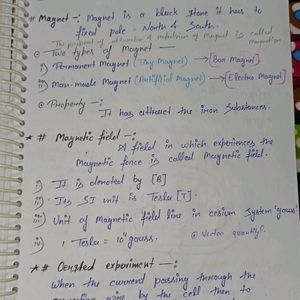 # Magnet -: Magnet is a black stone it has to
fixed pole - North & South.
The property of attraction & repulsion of magnet is called magnetism
Two types of Magnet -
i) Permanent Magnet (Tiny Magnet) → [Bar Magnet]
ii) Man-made Magnet (Artificial Magnet) → [Electro Magnet]
Property -:
It has attract the iron substances.
* # Magnetic field -:
A field in which experiences the
Magnetic force is called Magnetic field.
i) It is denoted by [B]
ii) Its SI unit is Tesla [T].
iii) Unit of Magnetic field line in system 'gauss'
iv) 1 Tesla = 10⁴ gauss.
Vector quantity.
* # Oersted experiment -:
When the current passing through the
wire by the cell then to